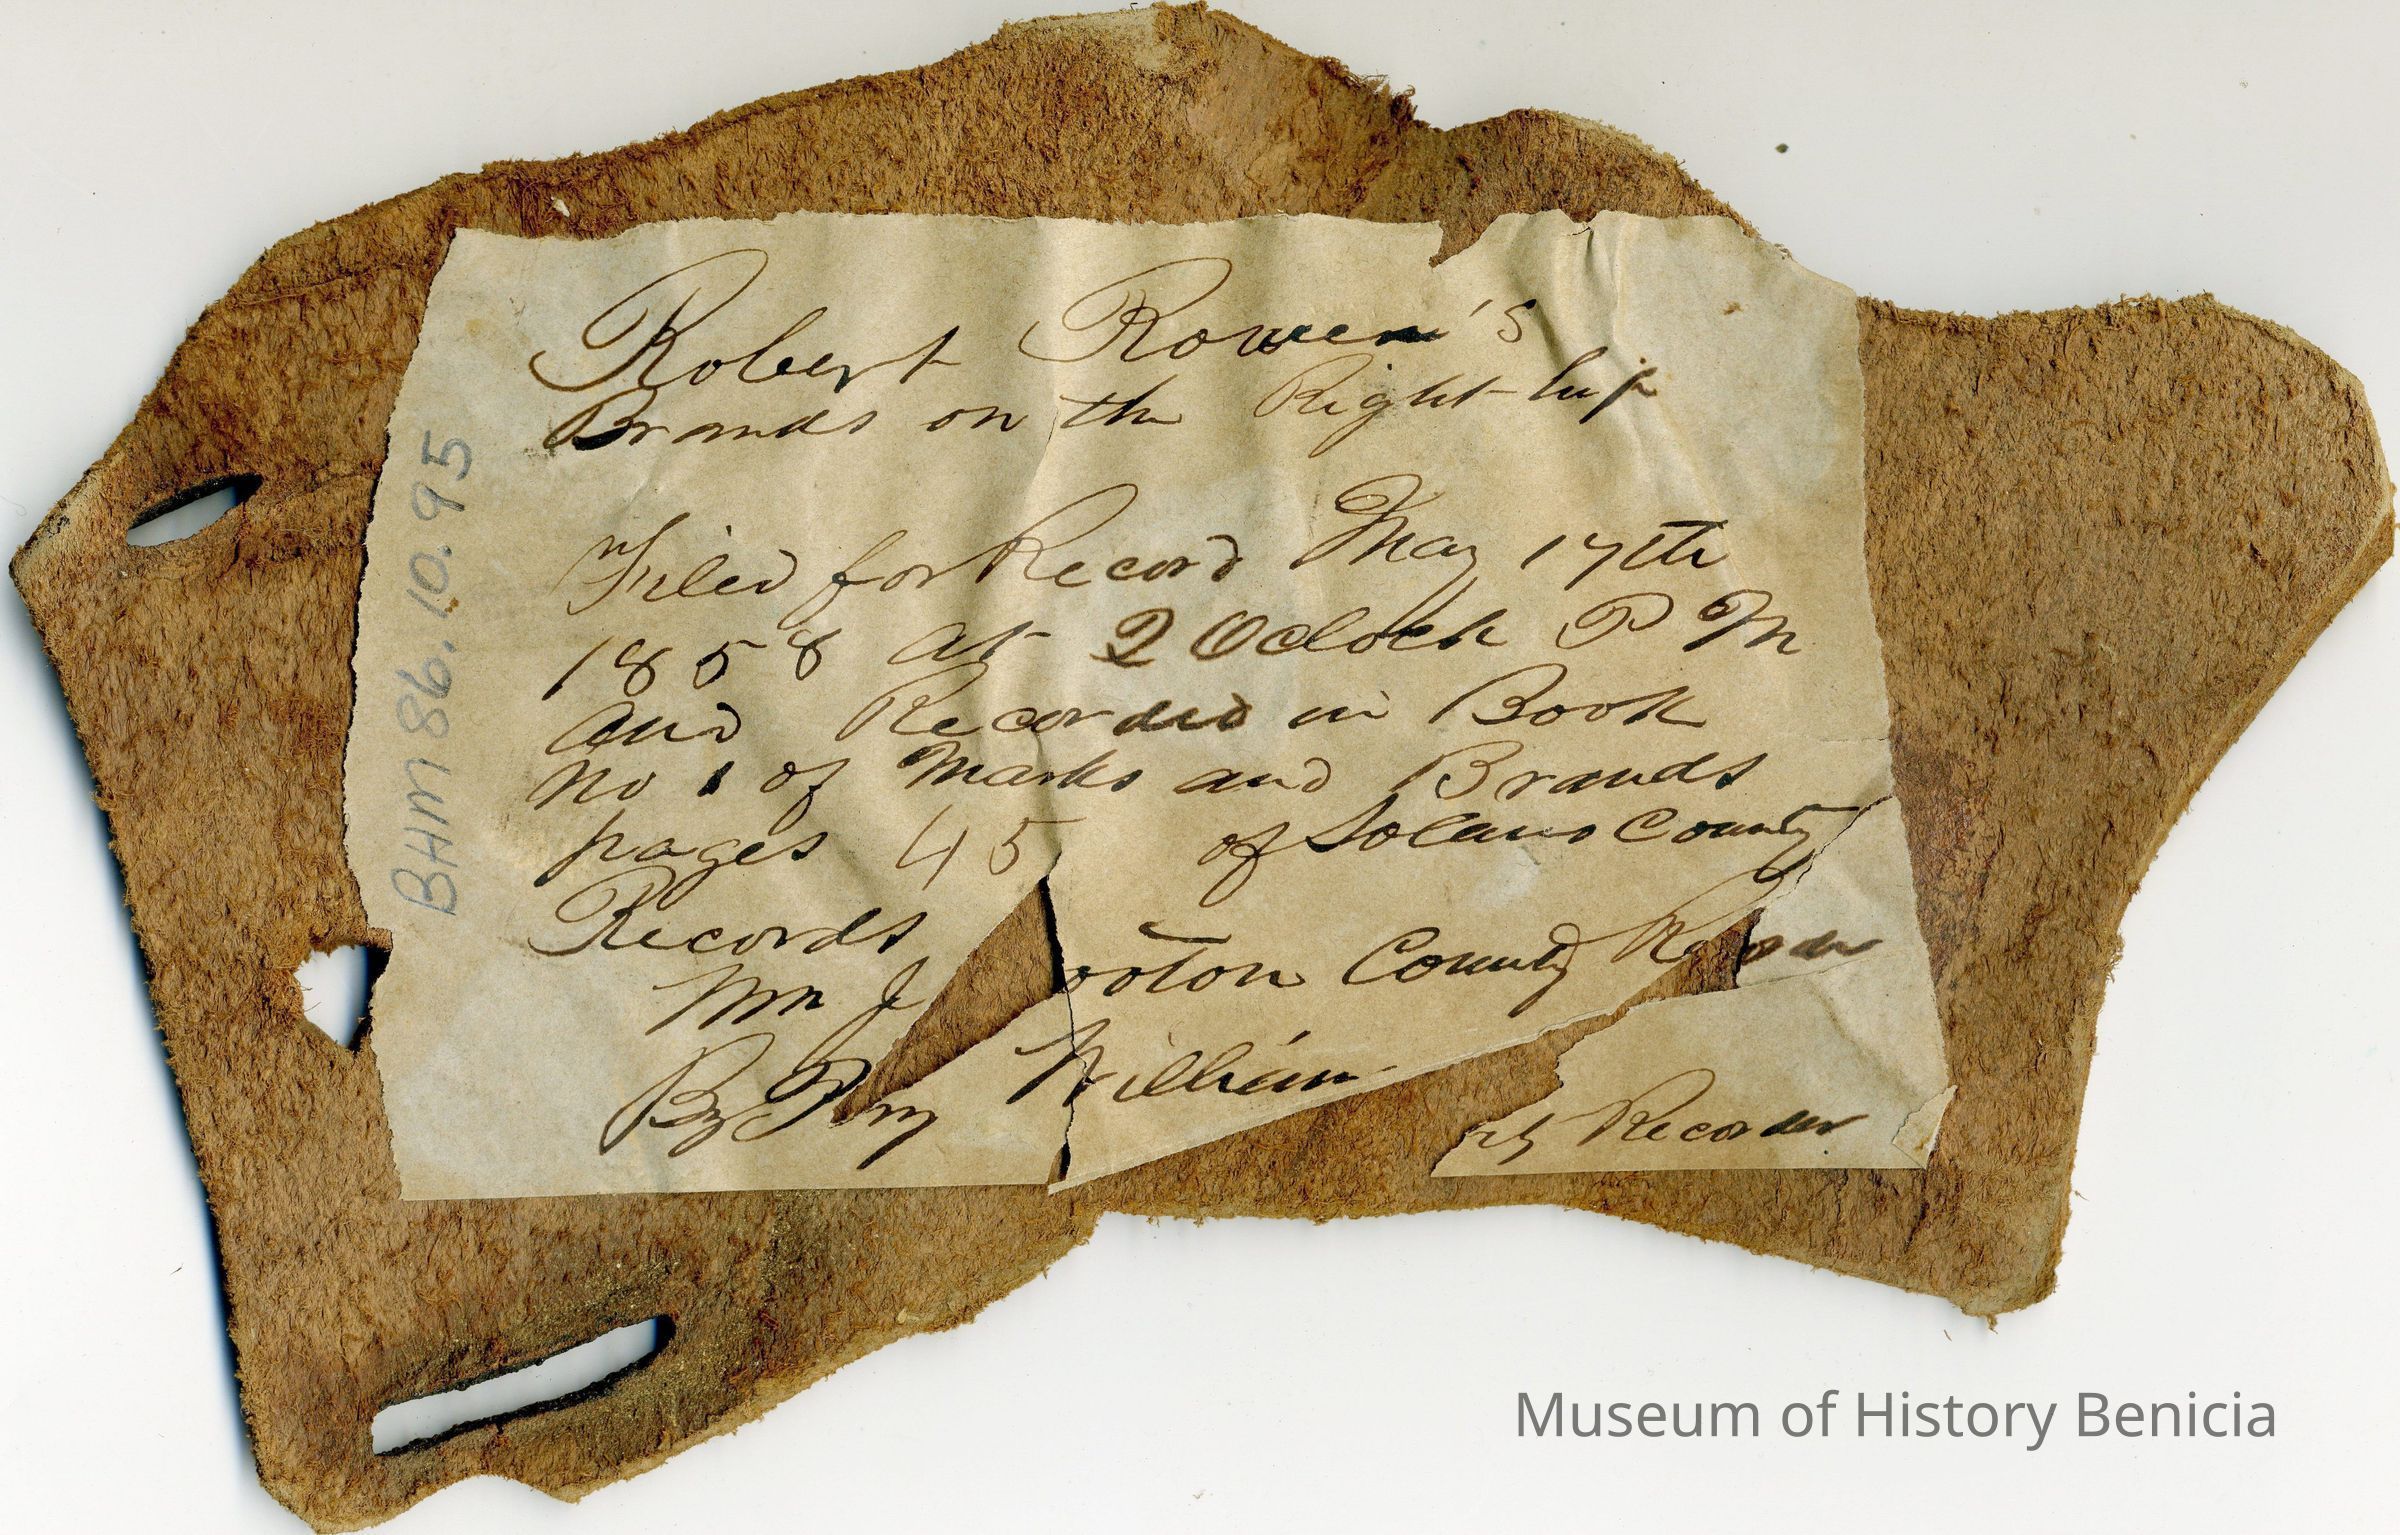 Robert Rowen's
Brands on the Right hip
Filed for Record May 17th
1858 at 2 Oclock P M
and Recorded in Book
No 1 of Marks and Brands
pages 45 of Solano County
Records
Wm J ooton County Recorder
By William
ty Recorder
BHM 86.10.95
Museum of History Benicia